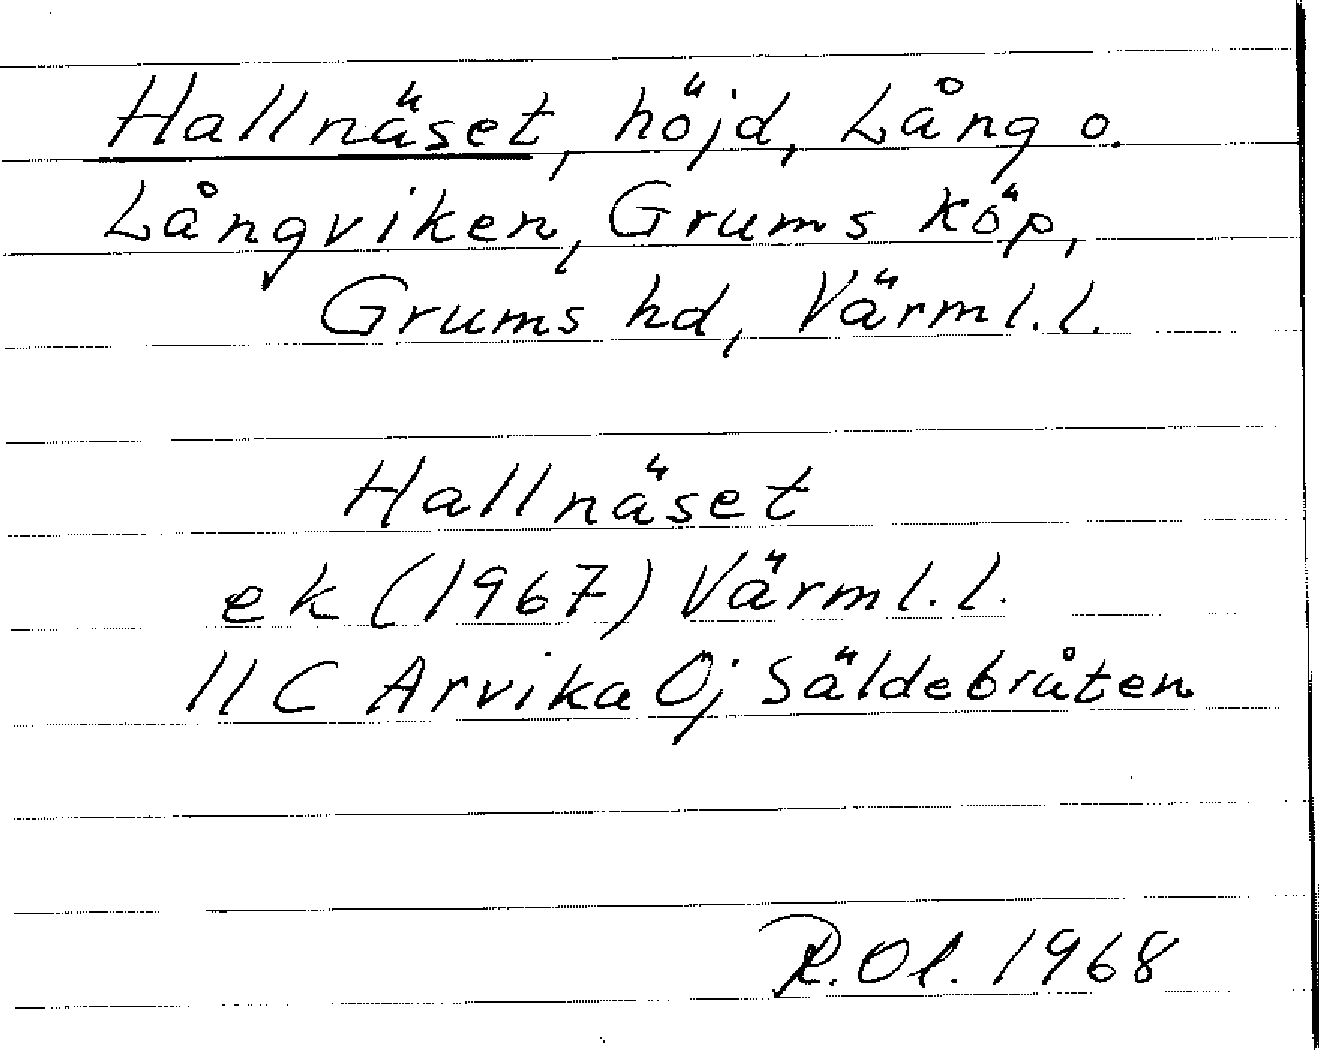 Hallnäset, höjd, Lång o.
Långviken, Grums köp,
Grums hd, Värml.l.
Hallnäset
ek (1967) Värml.l.
11C Arvika 0j Säldebråten
R.Ol. 1968